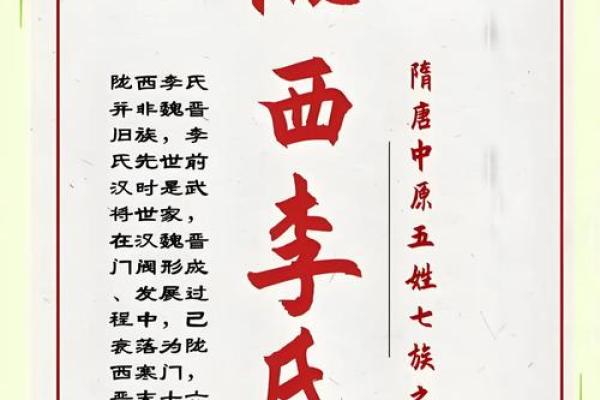 隋唐中原五姓七族之
西李氏
陇西李氏
并非魏晋
旧族，李
氏先世前
汉时是武
将世家，
在汉魏晋
门阀形成
、发展过
程中，己
衰落为陇
西寒门，
晋末十六